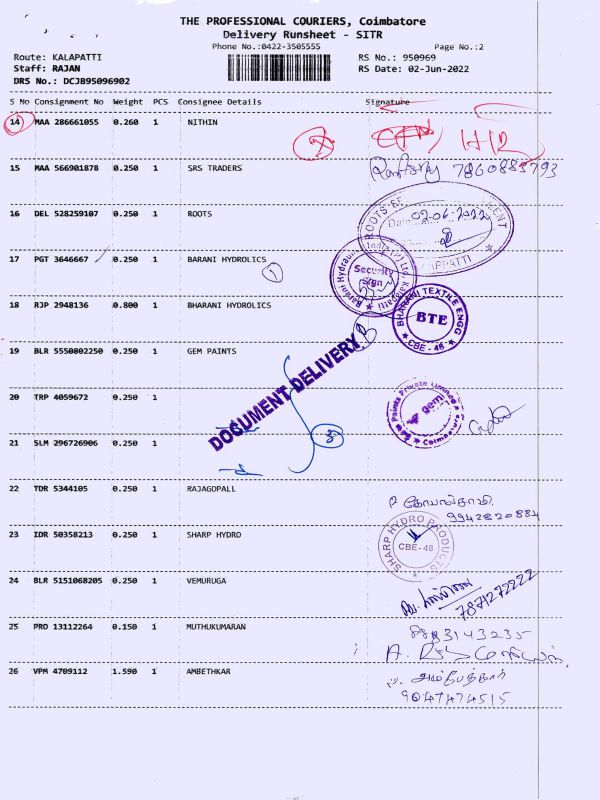 THE PROFESSIONAL COURIERS, Coimbatore
Delivery Runsheet - SITR
Phone No.:0422-3505555
Page No.:2
Route: KALAPATTI
RS No.: 950969
Staff: RAJAN
RS Date: 02-Jun-2022
DRS No.: DCJB95096902
S No Consignment No Weight PCS Consignee Details Signature
14 MAA 286661055 0.260 1 NITHIN
15 MAA 566901878 0.250 1 SRS TRADERS 7860885793
16 DEL 528259107 0.250 1 ROOTS
02-06-2022
17 PGT 3646667 0.250 1 BARANI HYDROLICS 1
Security Sign
18 RJP 2948136 0.800 1 BHARANI HYDROLICS
BHARANI TEXTILE ENGG
BTE
CBE - 48
19 BLR 5550802250 0.250 1 GEM PAINTS
DOCUMENT DELIVERY
20 TRP 4059672 0.250 1
gem
Paints Private Limited
Coimbatore
21 SLM 296726906 0.250 1
3
22 TDR 5344105 0.250 1 RAJAGOPALL
9942820884
23 IDR 50358213 0.250 1 SHARP HYDRO
SHARP HYDRO PRODUCTS
CBE-48
24 BLR 5151068205 0.250 1 VEMURUGA
7871272222
25 PRO 13112264 0.150 1 MUTHUKUMARAN
26 VPM 4709112 1.590 1 AMBETHKAR
9047474515